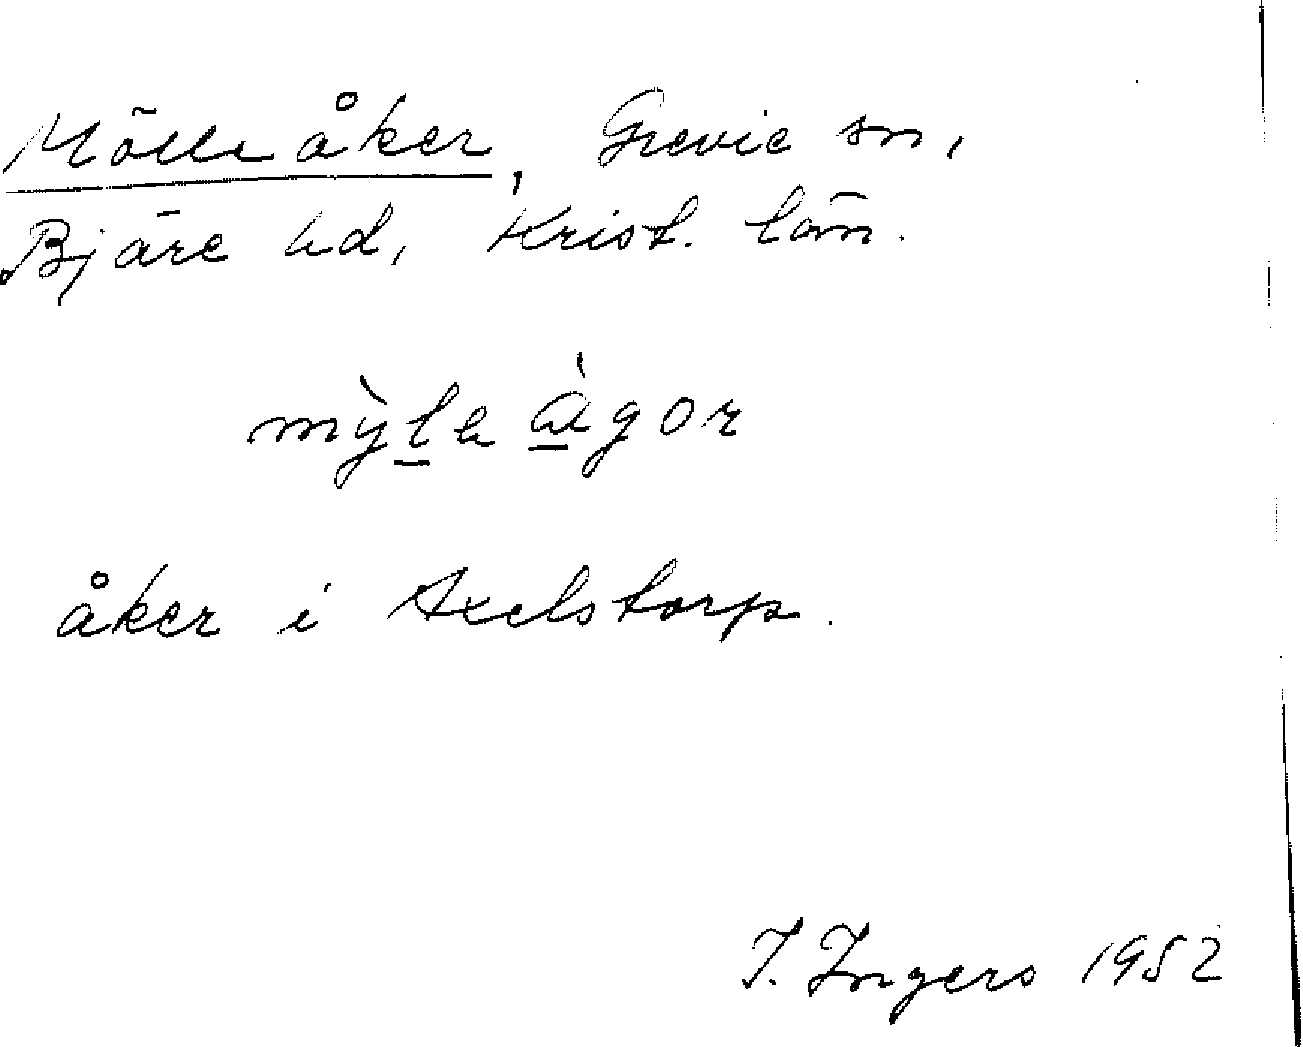 Mölleåker, Grevie sn,
Bjäre hd, Krist. län.
mỳle àgor
åker i Axelstorp.
I. Ingers 1952